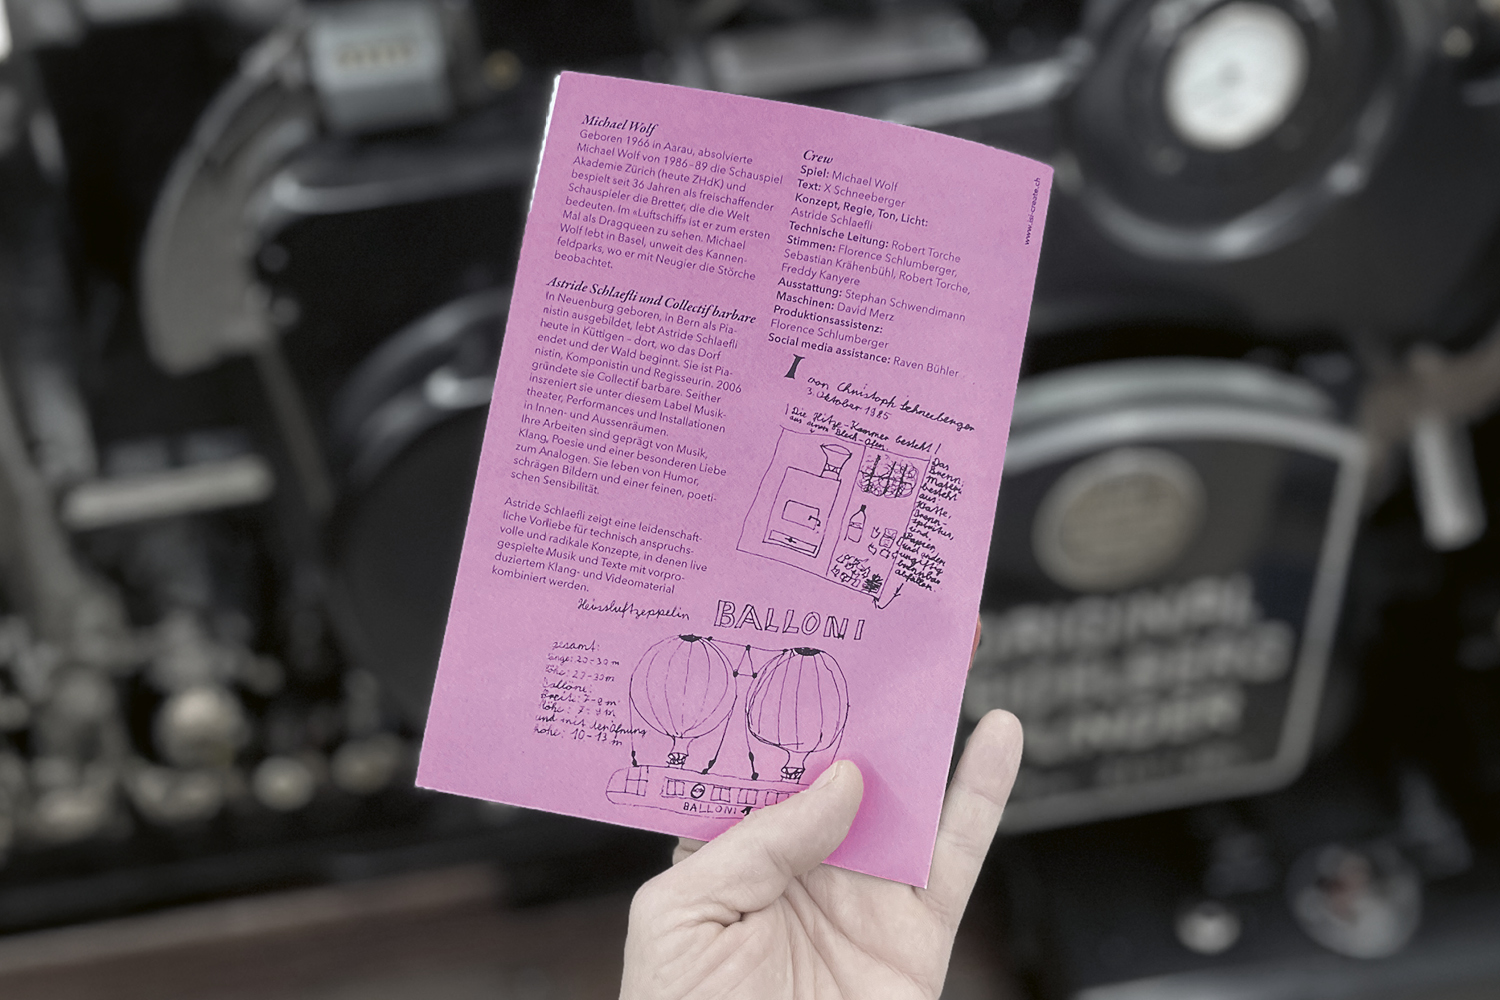 Michael Wolf
Geboren 1966 in Aarau, absolvierte
Michael Wolf von 1986–89 die Schauspiel
Akademie Zürich (heute ZHdK) und
bespielt seit 36 Jahren als freischaffender
Schauspieler die Bretter, die die Welt
bedeuten. Im «Luftschiff» ist er zum ersten
Mal als Dragqueen zu sehen. Michael
Wolf lebt in Basel, unweit des Kannen-
feldparks, wo er mit Neugier die Störche
beobachtet.
Astride Schlaefli und Collectif barbare
In Neuenburg geboren, in Bern als Pia-
nistin ausgebildet, lebt Astride Schlaefli
heute in Küttigen – dort, wo das Dorf
endet und der Wald beginnt. Sie ist Pia-
nistin, Komponistin und Regisseurin. 2006
gründete sie Collectif barbare. Seither
inszeniert sie unter diesem Label Musik-
theater, Performances und Installationen
in Innen- und Aussenräumen.
Ihre Arbeiten sind geprägt von Musik,
Klang, Poesie und einer besonderen Liebe
zum Analogen. Sie leben von Humor,
schrägen Bildern und einer feinen, poeti-
schen Sensibilität.
Astride Schlaefli zeigt eine leidenschaft-
liche Vorliebe für technisch anspruchs-
volle und radikale Konzepte, in denen live
gespielte Musik und Texte mit vorpro-
duziertem Klang- und Videomaterial
kombiniert werden.
Crew
Spiel: Michael Wolf
Text: X Schneeberger
Konzept, Regie, Ton, Licht:
Astride Schlaefli
Technische Leitung: Robert Torche
Stimmen: Florence Schlumberger,
Sebastian Krähenbühl, Robert Torche,
Freddy Kanyere
Ausstattung: Stephan Schwendimann
Maschinen: David Merz
Produktionsassistenz:
Florence Schlumberger
Social media assistance: Raven Bühler
www.isi-create.ch
I von Christoph Schneeberger
3. Oktober 1985
Die Hitze-Kammer besteht
aus einem Blech-Ofen.
Das
Brenn-
Material
besteht
aus
Watte,
Brenn-
spiritus,
und
Papier,
und
brennbar
abfällen.
Heissluftzeppelin
BALLONI
gesamt:
länge: 20–30 m
höhe: 20–30 m
Ballone:
Breite: 7–8 m
höhe: 7–9 m
und mit
höhe: 10–13 m
BALLONI
ORIGINAL
HEIDELBERG
CYLINDER